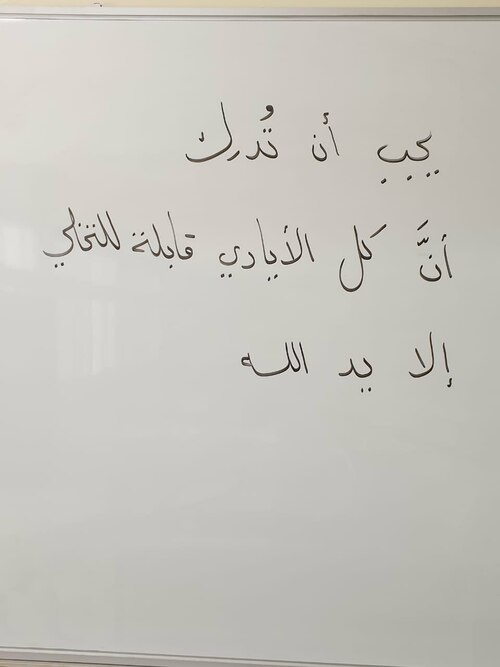 يجب أن تُدرك
أنَّ كل الأيادي قابلة للتخلي
إلا يد الله